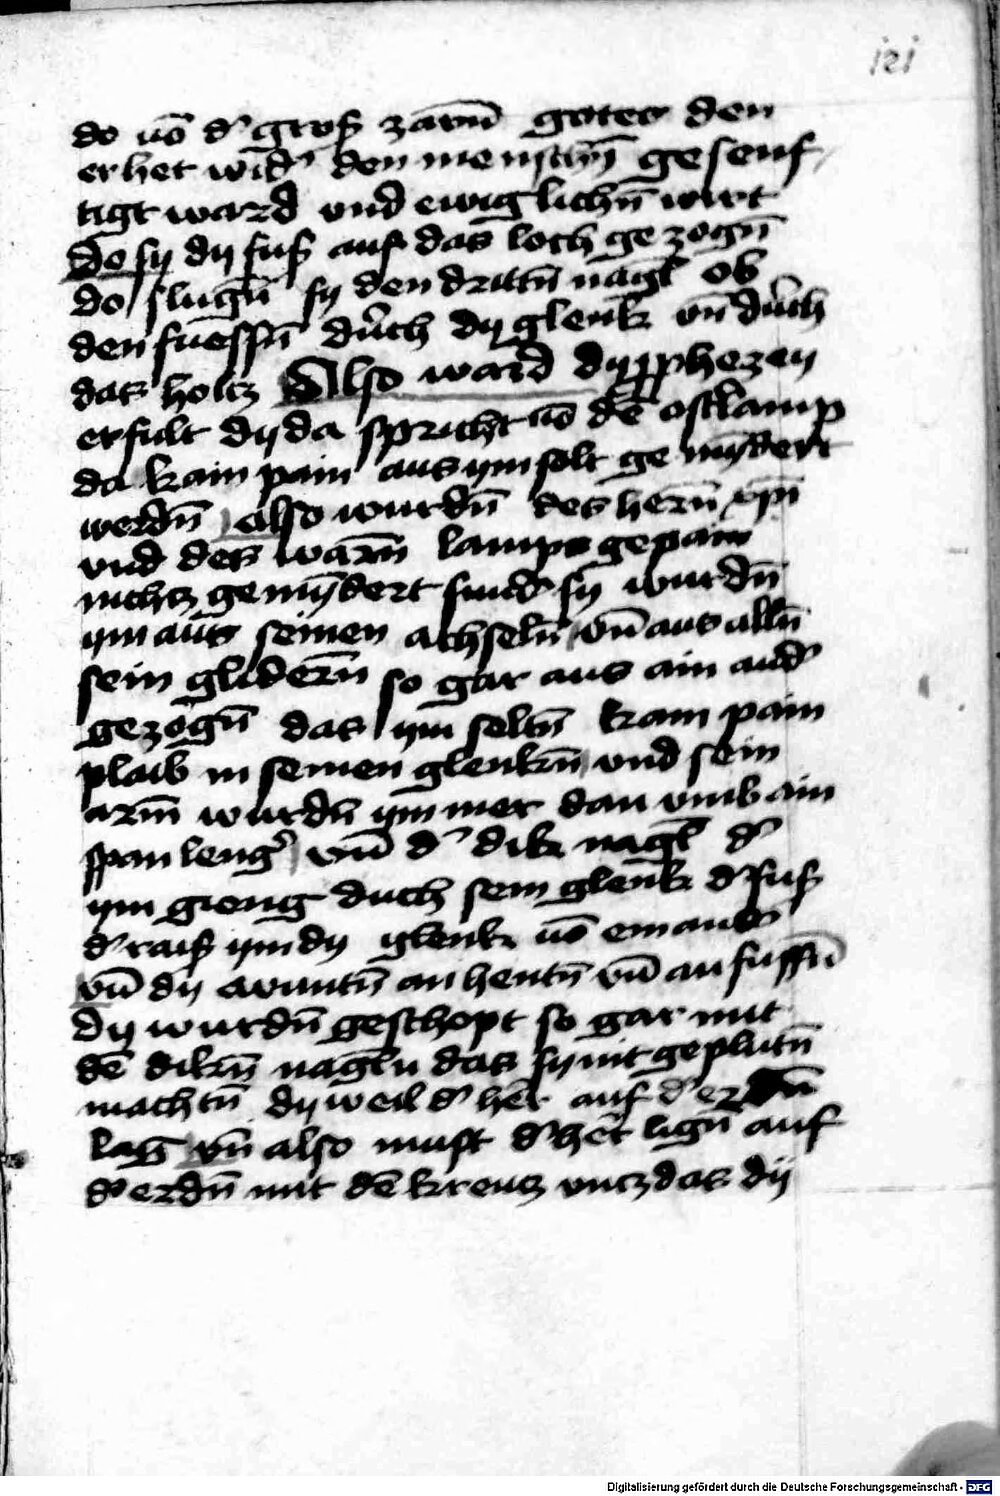 121
do uō d' groß zarn̄ gotes den
er het wid' den menschn̄ gesenf
tigt ward und ewiglichn̄ wirt
Do sy dy fuß auf das loch gezogn̄
do slugn̄ sy den drittn̄ nagl ob
den fuessn̄ durch dy glenk vn̄ durch
das holtz Also ward dy pphezey
erfult dy da spricht uō dē ostlamp
da kain pain aus ym solt gemyndert
werdn̄ also wurdn̄ des hern̄
vnd des warn̄ lamps gepain
nichtz gemyndert sund' sy wurdn̄
ym aus seinen achseln̄ vn̄ aus alln̄
sein glidern̄ so gar aus ain and'
gezogn̄ das ym seltn̄ kain pain
plaib in seinen glenkn̄ vnd sein
arm̄ wurdn̄ ym mer dan vmb ain
span leng' vn̄ d' dik nagl d'
ym gieng duch sein glenk d' fuß
d' raiß ym dy glenk uō einand'
vn̄ dy wuntn̄ an hentn̄ vn̄ an fussn̄
dy wurdn̄ geschopt so gar mit
dē dikn̄ nagln das sy nit geplutn̄
machtn̄ dy weil d' her auf d' erdn̄
lag vn̄ also must d' her lign̄ auf
d' erdn̄ mit dē kreutz vntz das dy
Digitalisierung gefördert durch die Deutsche Forschungsgemeinschaft - DFG